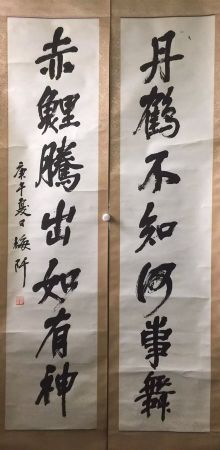 丹鶴不知何事舞
赤鯉騰出如有神
庚午夏日 緩阡